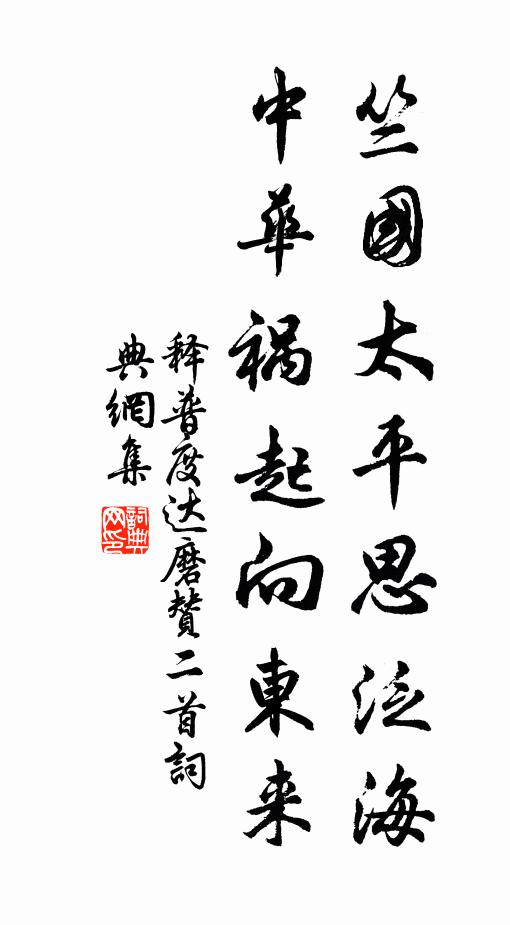 竺國太平思泛海
中華祸起向東来
释普度达磨贊二首詞
典網集
詞典
网印